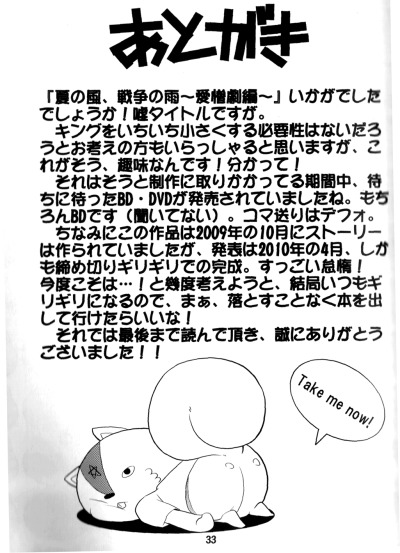 あとがき
『夏の風、戦争の雨～愛憎劇編～』いかがでした
でしょうか！嘘タイトルですが。
キングをいちいち小さくする必要性はないだろ
うとお考えの方もいらっしゃると思いますが、こ
れがそう、趣味なんです！分かって！
それはそうと制作に取りかかってる期間中、待
ちに待ったBD・DVDが発売されていましたね。もち
ろんBDです（聞いてない）。コマ送りはデフォ。
ちなみにこの作品は2009年の10月にストーリー
は作られていましたが、発表は2010年の4月、しか
も締め切りギリギリでの完成。すっごい怠惰！
今度こそは…！と幾度考えようと、結局いつもギ
リギリになるので、まぁ、落とすことなく本を出
して行けたらいいな！
それでは最後まで読んで頂き、誠にありがとう
ございました！！
Take me now!
33